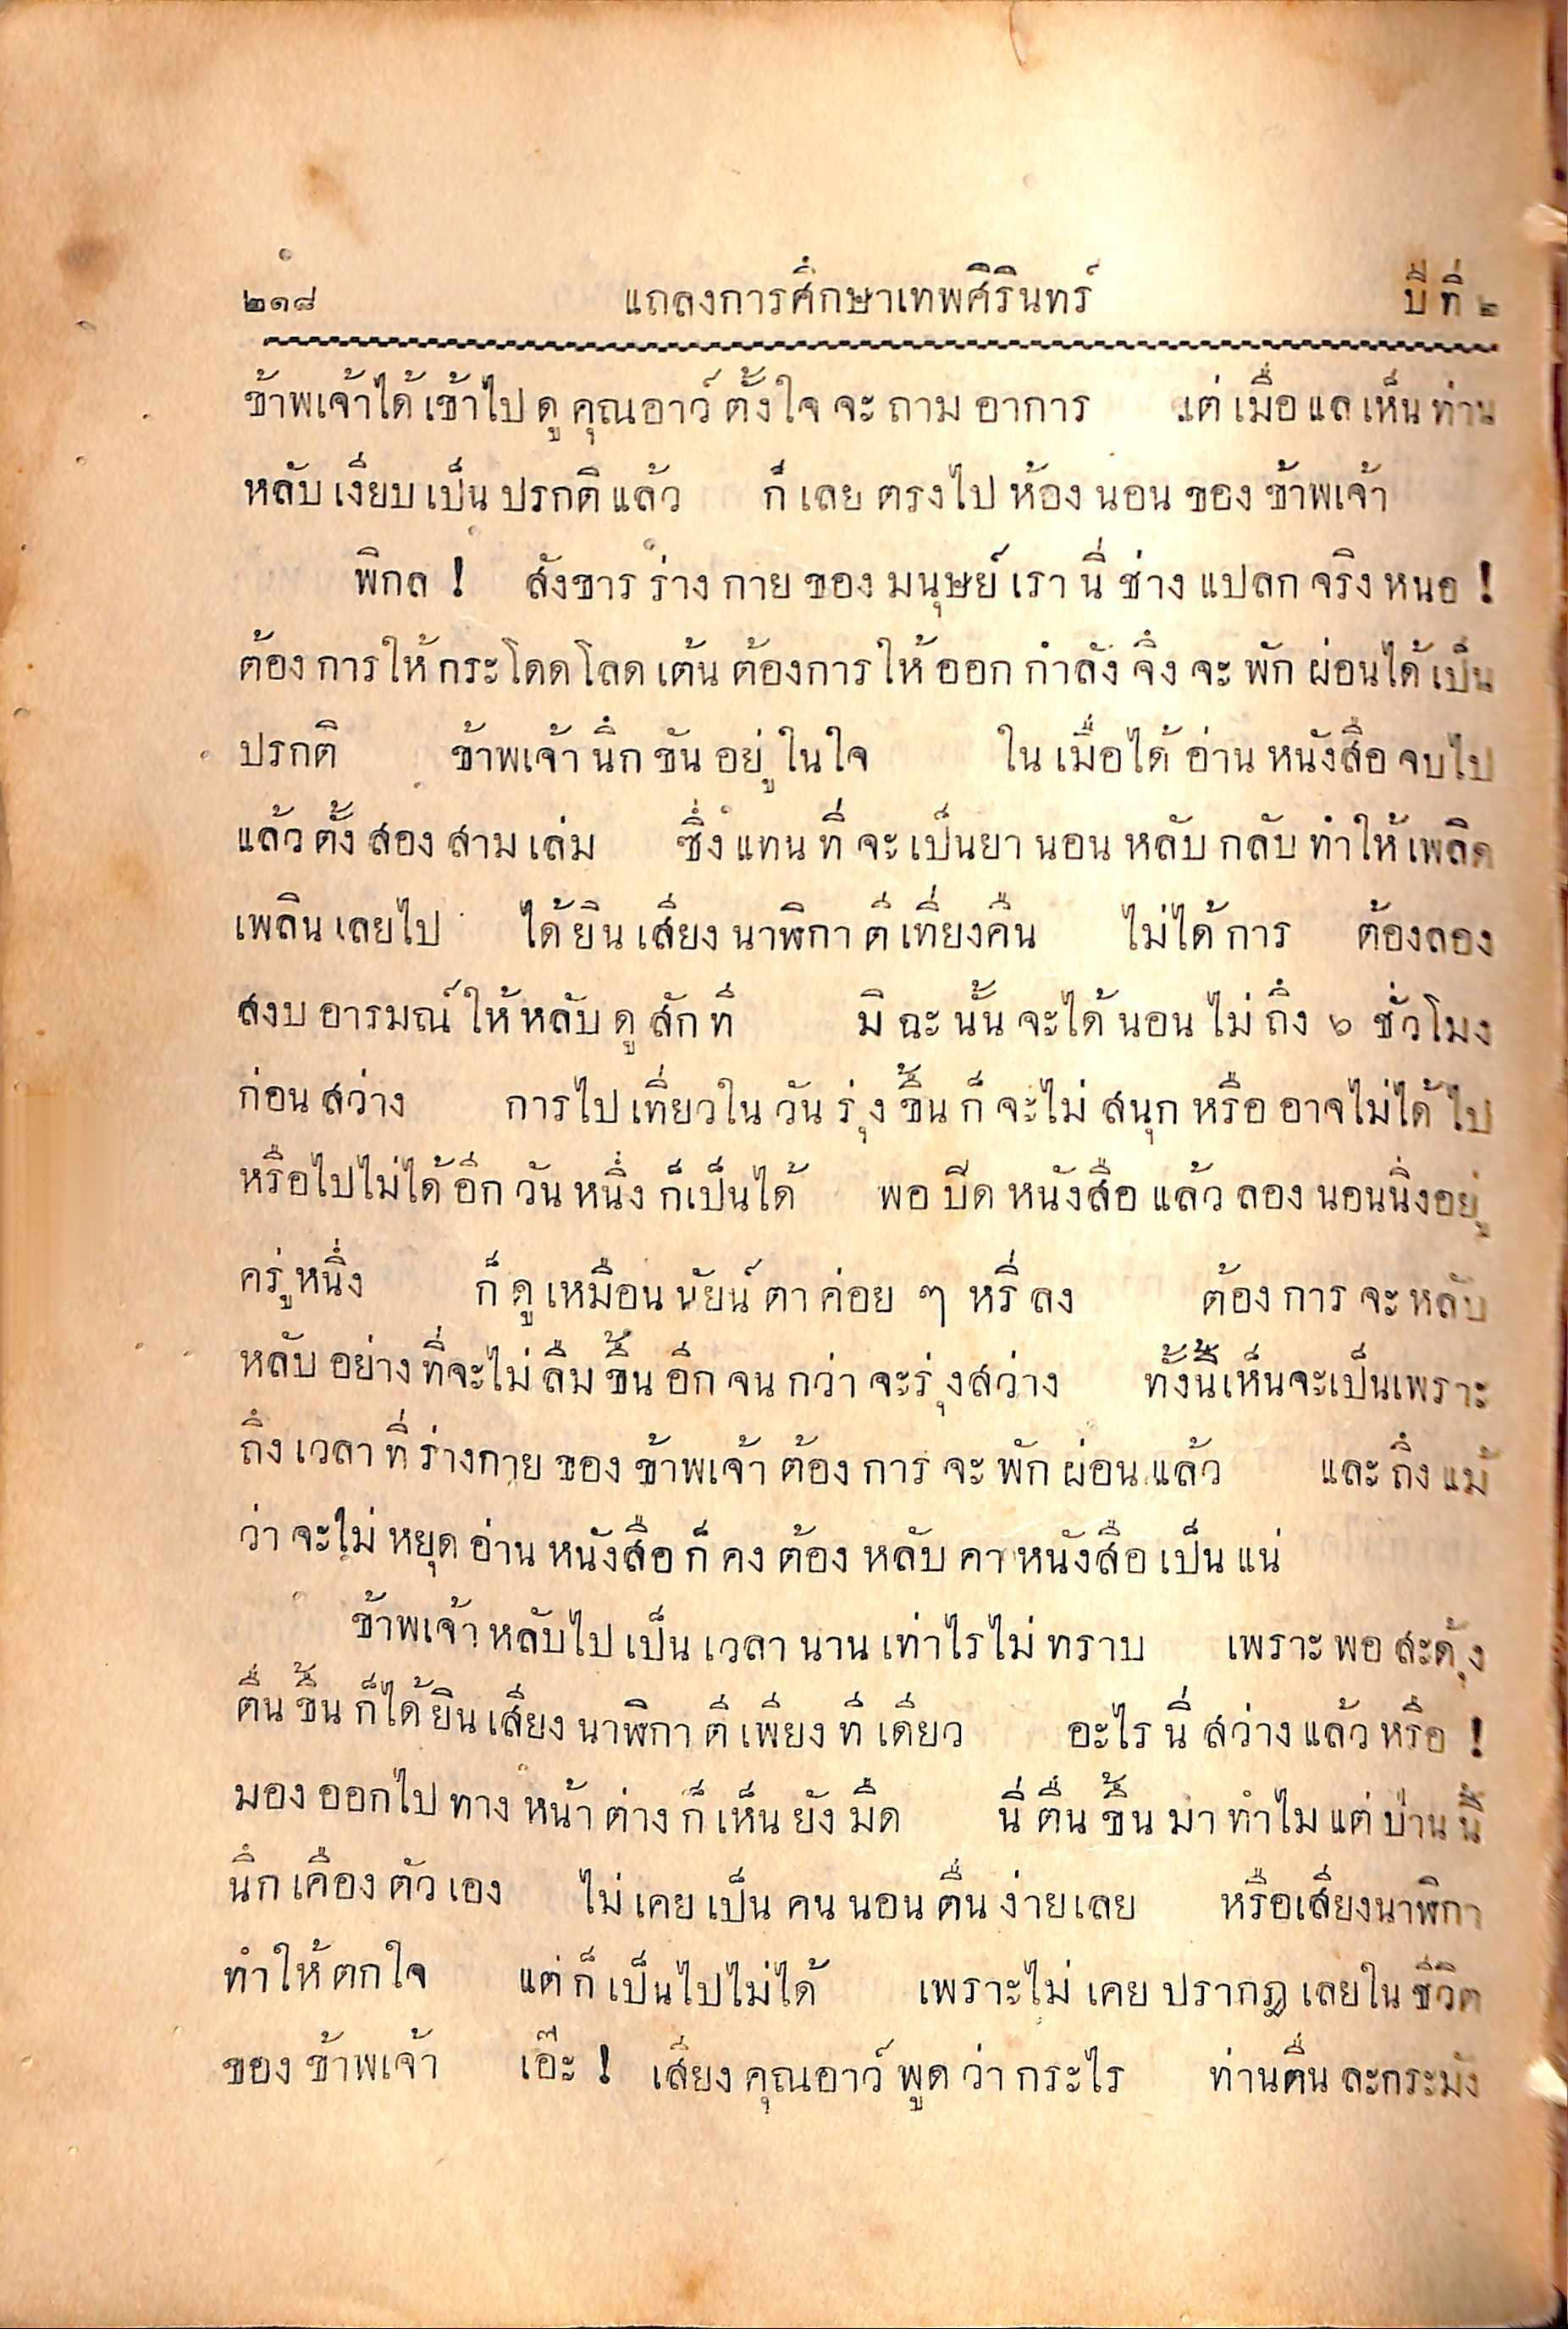 ๒๑๘ แถลงการศึกษาเทพศิรินทร์ ปีที่ ๒
ข้าพเจ้าได้เข้าไปดูคุณอาว์ ตั้งใจจะถามอาการ แต่เมื่อแลเห็นท่าน
หลับเงียบเป็นปรกติแล้ว ก็เลยตรงไปห้องนอนของข้าพเจ้า
พิกล ! สังขารร่างกายของมนุษย์เรานี่ช่างแปลกจริงหนอ !
ต้องการให้กระโดดโลดเต้น ต้องการให้ออกกำลังจึงจะพักผ่อนได้เป็น
ปรกติ ข้าพเจ้านึกขันอยู่ในใจ ในเมื่อได้อ่านหนังสือจบไป
แล้วตั้งสองสามเล่ม ซึ่งแทนที่จะเป็นยานอนหลับกลับทำให้เพลิด
เพลินเลยไป ได้ยินเสียงนาฬิกาตีเที่ยงคืน ไม่ได้การ ต้องลอง
สงบอารมณ์ให้หลับดูสักที มิฉะนั้นจะได้นอนไม่ถึง ๖ ชั่วโมง
ก่อนสว่าง การไปเที่ยวในวันรุ่งขึ้นก็จะไม่สนุกหรืออาจไม่ได้ไป
หรือไปไม่ได้อีกวันหนึ่งก็เป็นได้ พอปิดหนังสือแล้วลองนอนนิ่งอยู่
ครู่หนึ่ง ก็ดูเหมือนนัยน์ตาค่อย ๆ หรี่ลง ต้องการจะหลับ
หลับอย่างที่จะไม่ลืมขึ้นอีกจนกว่าจะรุ่งสว่าง ทั้งนี้เห็นจะเป็นเพราะ
ถึงเวลาที่ร่างกายของข้าพเจ้าต้องการจะพักผ่อนแล้ว และถึงแม้
ว่าจะไม่หยุดอ่านหนังสือก็คงต้องหลับคาหนังสือเป็นแน่
ข้าพเจ้าหลับไปเป็นเวลานานเท่าไรไม่ทราบ เพราะพอสะดุ้ง
ตื่นขึ้นก็ได้ยินเสียงนาฬิกาตีเพียงทีเดียว อะไรนี่สว่างแล้วหรือ !
มองออกไปทางหน้าต่างก็เห็นยังมืด นี่ตื่นขึ้นมาทำไมแต่ป่านนี้
นึกเคืองตัวเอง ไม่เคยเป็นคนนอนตื่นง่ายเลย หรือเสียงนาฬิกา
ทำให้ตกใจ แต่ก็เป็นไปไม่ได้ เพราะไม่เคยปรากฏเลยในชีวิต
ของข้าพเจ้า เอ๊ะ ! เสียงคุณอาว์พูดว่ากระไร ท่านตื่นละกระมัง